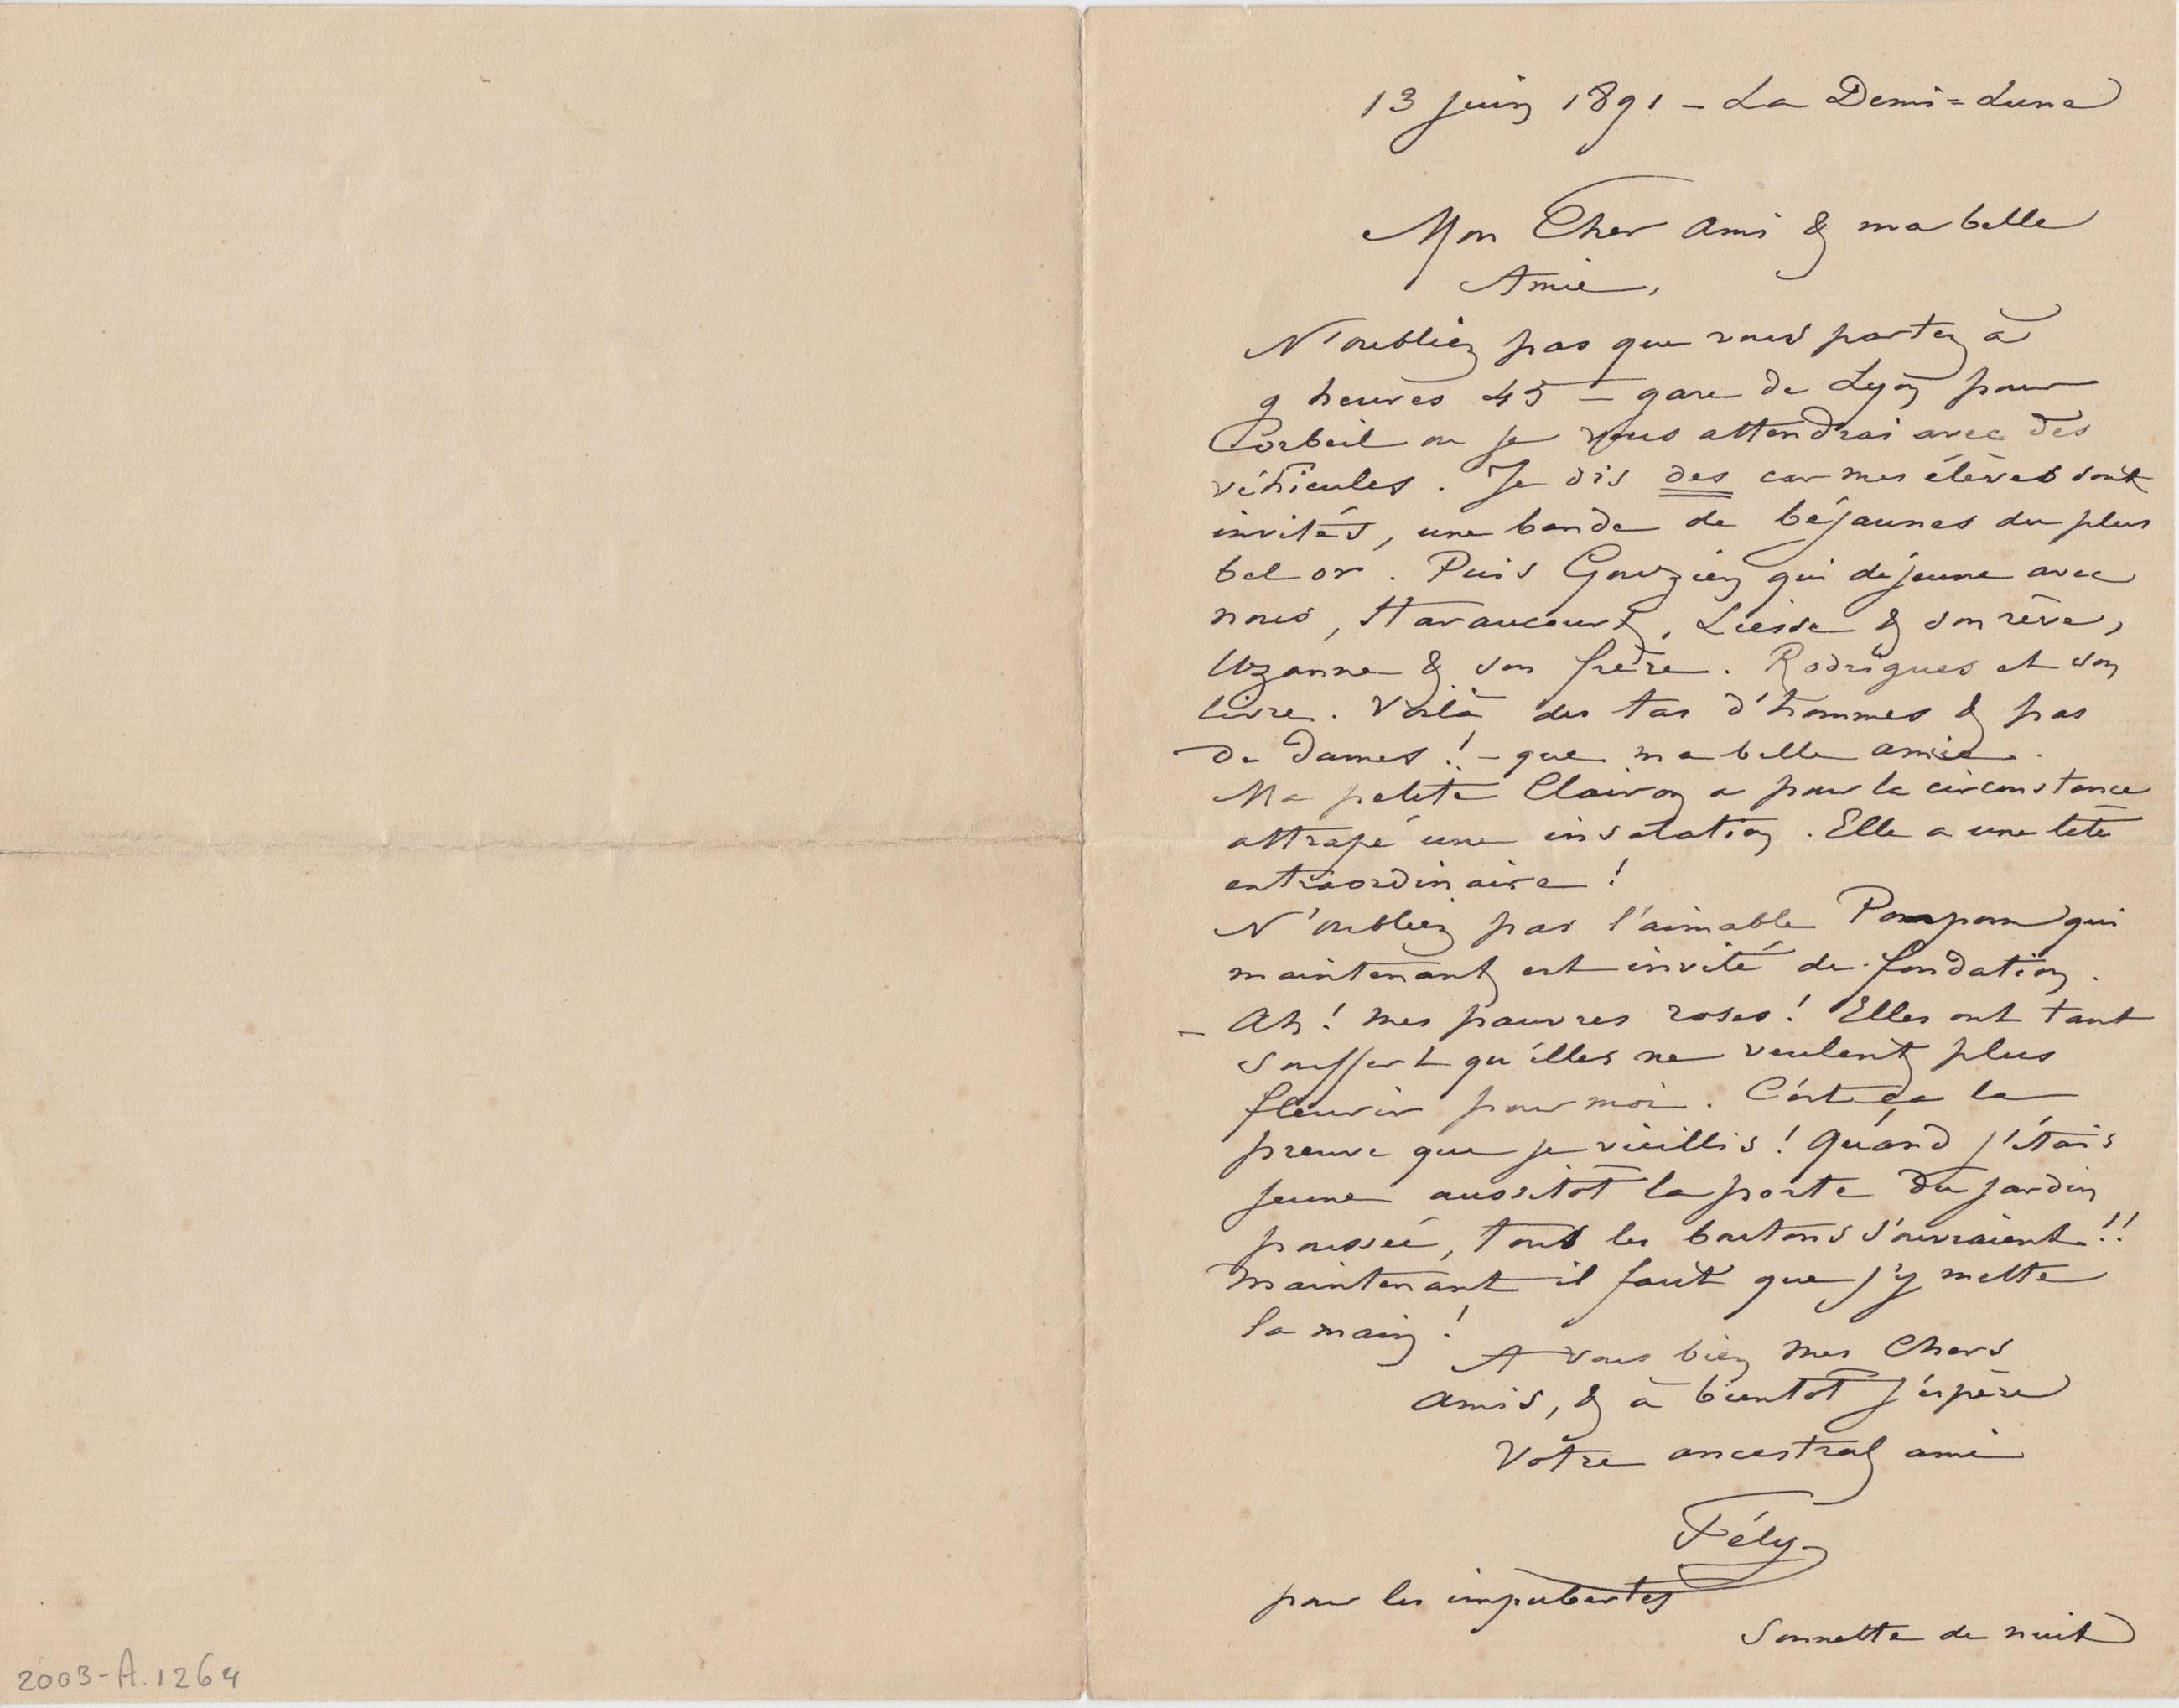 13 juin 1891 – La Demi=Lune
Mon Cher Ami & ma belle
Amie,
N'oubliez pas que vous partez à
9 heures 45 – gare de Lyon pour
Corbeil ou je vous attendrai avec des
véhicules. Je dis des car mes élèves sont
invités, une bande de béjaunes du plus
bel or. Puis Gouzien qui déjeune avec
nous, Haraucourt, Liesse & son rêve,
Uzanne & son frère. Rodrigues et son
livre. Voilà des tas d'hommes & pas
de dames ! – que ma belle amie.
Ma petite Clairon a pour la circonstance
attrapé une insolation. Elle a une tête
extraordinaire !
N'oubliez pas l'aimable Pompon qui
maintenant est invité de fondation.
– Ah ! mes pauvres roses ! Elles ont tant
souffert qu'elles ne veulent plus
fleurir pour moi. C'est ça la
preuve que je vieillis ! Quand j'étais
jeune aussitôt la porte du jardin
poussée, tous les boutons s'ouvraient !!
Maintenant il faut que j'y mette
la main !
A vous bien mes Chers
amis, & à bientôt j'espère
Votre ancestral ami
Fély
pour les impubertes
Sonnette de nuit
2003-A.1264